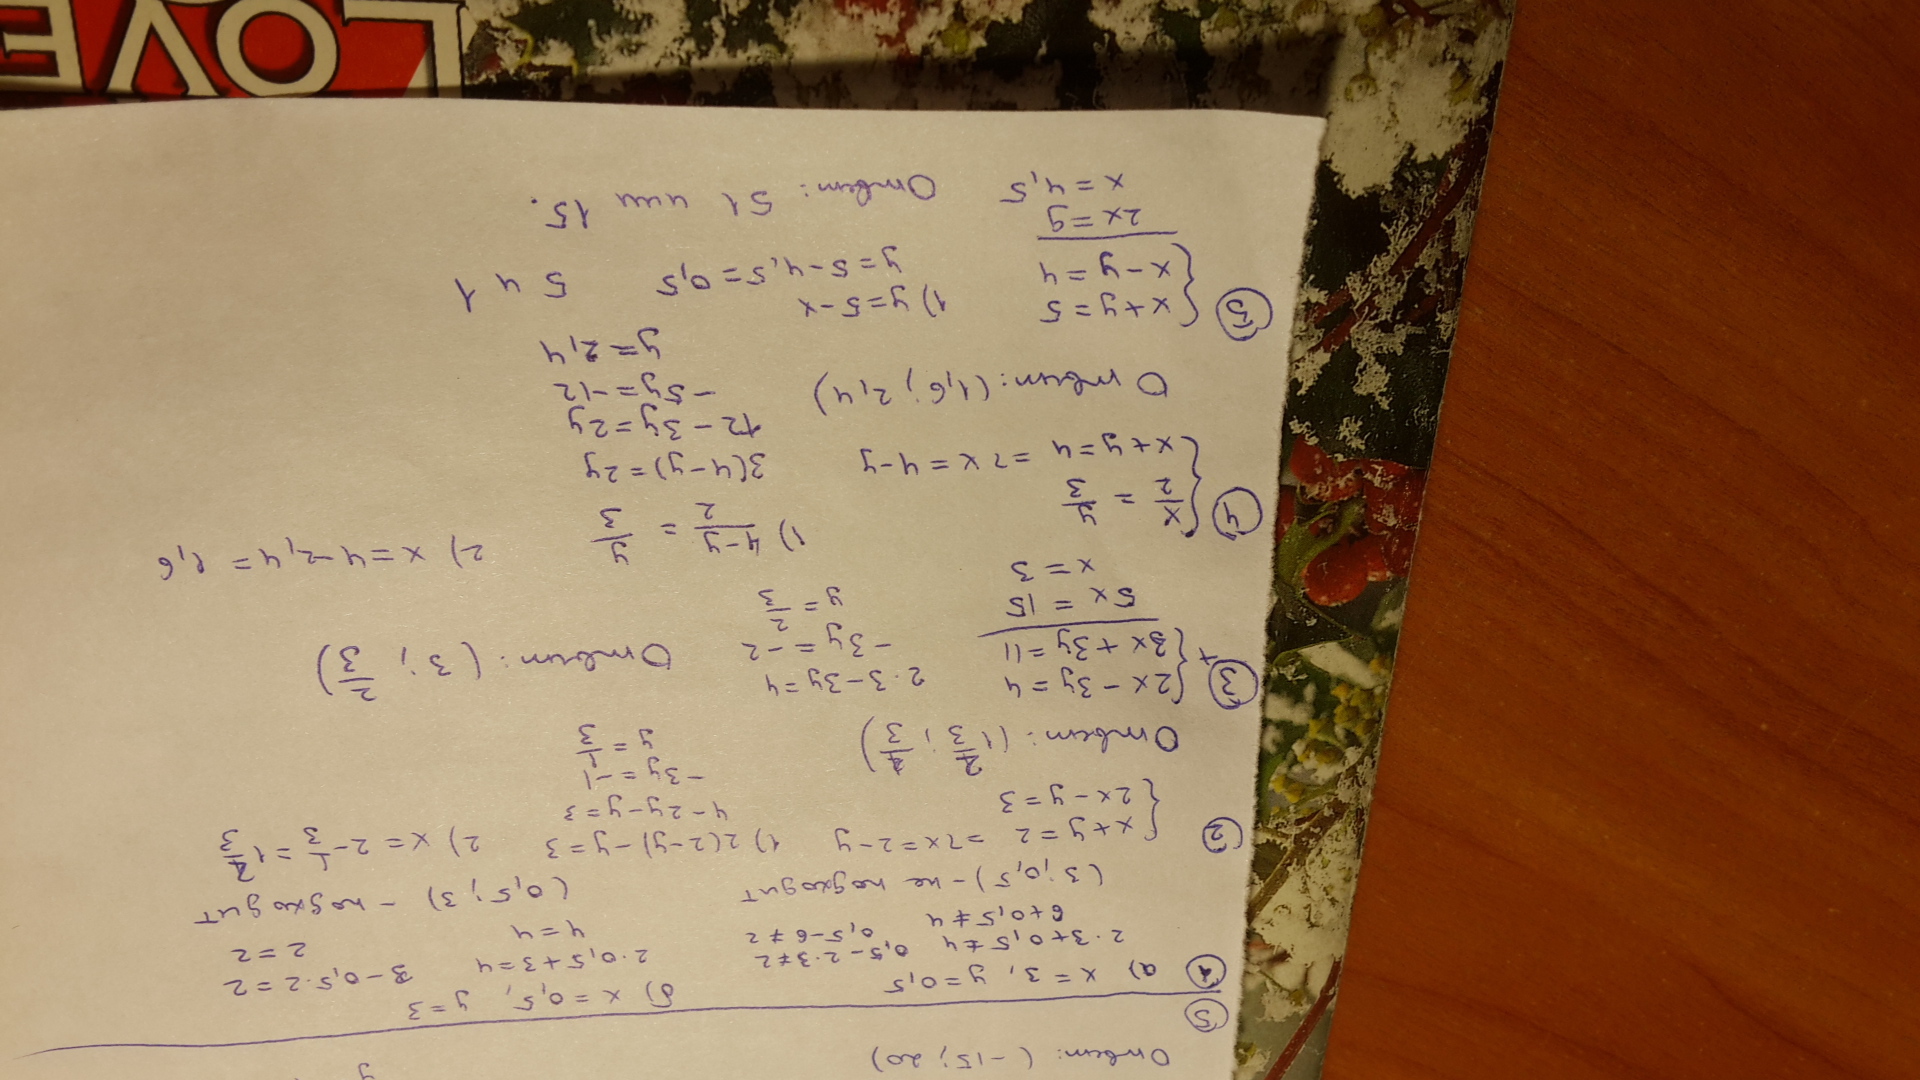 Ответ: (-15; 20)
y
5
1 а) x = 3, y = 0,5
б) x = 0,5, y = 3
2·3+0,5 ≠ 4 0,5 - 2·3 ≠ 2
6+0,5 ≠ 4 0,5-6 ≠ 2
(3; 0,5) - не подходит
2·0,5+3=4 3-0,5·2=2
4=4 2=2
(0,5; 3) - подходит
2 {x+y=2 => x=2-y
{2x-y=3
1) 2(2-y)-y=3
4-2y-y=3
-3y=-1
y = 1/3
2) x = 2 - 1/3 = 1 2/3
Ответ: (1 2/3; 1/3)
3 {2x-3y=4
+ {3x+3y=11
5x = 15
x = 3
2·3-3y=4
-3y=-2
y = 2/3
Ответ: (3; 2/3)
4 {x/2 = y/3
{x+y=4 => x=4-y
1) 4-y/2 = y/3
3(4-y)=2y
12-3y=2y
-5y=-12
y=2,4
2) x=4-2,4=1,6
Ответ: (1,6; 2,4)
5 {x+y=5
{x-y=4
2x=9
x=4,5
1) y=5-x
y=5-4,5=0,5
5 и 1
Ответ: 51 или 15.
LOVE